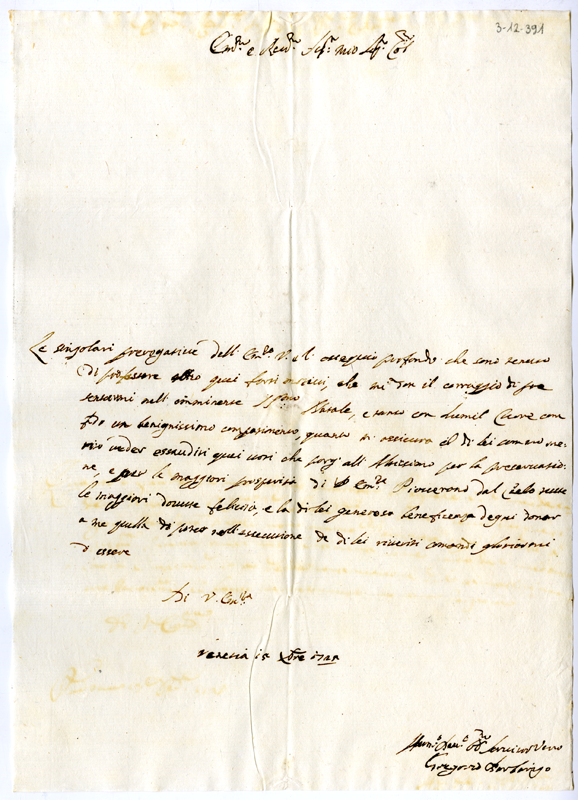 3-12-391
Em.mo e Rev.mo Sig.r mio Sig.r Col.mo
Le singolari prerogative dell'Em.za V. e l'ossequio profondo che sono tenuto
di professare sono quei forti motivi, che mi dan il corraggio di pre
sentarmi nell'imminente SS.mo Natale, e tanto con l'umil Cuore con
fido un benignissimo compatimento, quanto m'assicura el di lei comune me
rito veder essauditi quei voti che porgo all'Altissimo per la preservatio
ne, e per le maggiori prosperità di V. Em.za Pioveranno dal Cielo tutte
le maggiori dovute felicità, e la di lei generosa beneficenza degni donar
a me quella di poter nell'essecuzione de di lei riveriti comandi gloriarmi
d'essere
Di V. Em.za
Venetia 15 Xbre
Hum.o Dev.o Obb.mo Servitor Vero
Gregorio Barbarigo